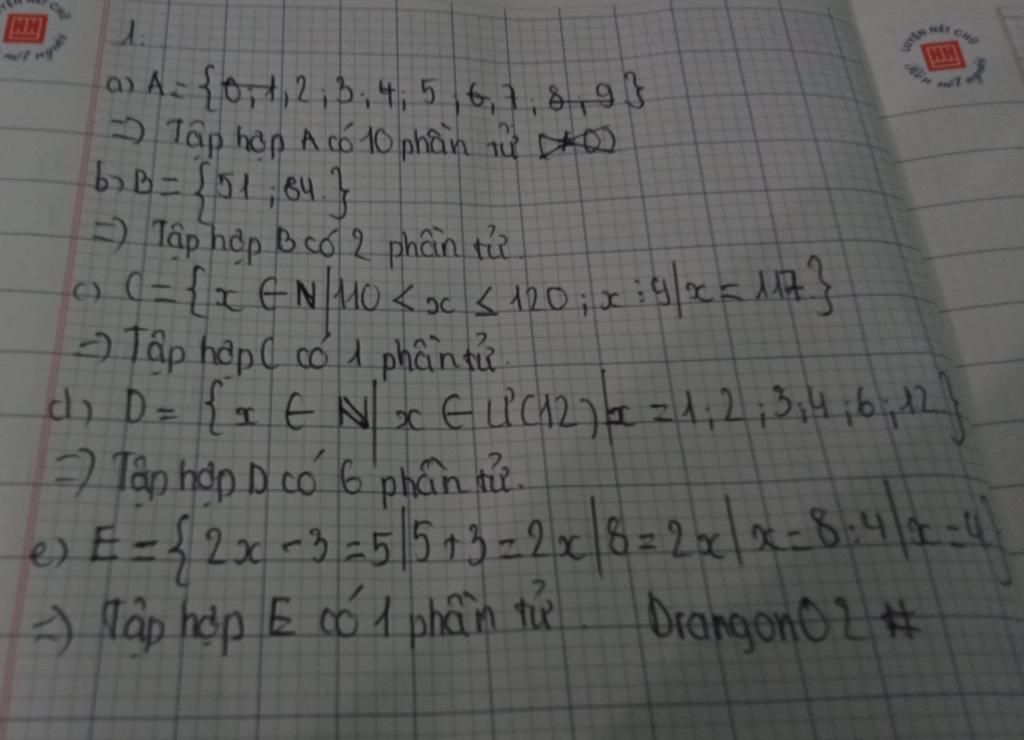 1.
a) A = {0; 1, 2; 3; 4; 5; 6, 7; 8, 9}
=) Tập hợp A có 10 phần tử
b) B = {51; 84.}
=) Tập hợp B có 2 phần tử
c) C = {x ∈ N | 110 < x ≤ 120; x : 9 | x = 117}
=) Tập hợp C có 1 phần tử.
d) D = {x ∈ N | x ∈ Ư(12) | x = 1; 2; 3; 4; 6; 12}
=) Tập hợp D có 6 phần tử.
e) E = {2x - 3 = 5 | 5 + 3 = 2x | 8 = 2x | x = 8 : 4 | x = 4}
=) Tập hợp E có 1 phần tử DrangonO2 #